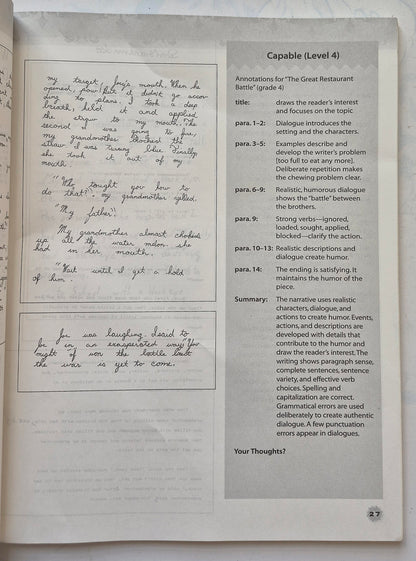 my target, Joy's mouth. When he
opened, pow! But it didn't go accor
ding to plans. I took a deep
breath, held it and applied
the straw to my mouth. The
second I was going to fire,
my grandmother blocked the
straw. I was turning blue. Finally
she took it out of my
mouth.
"Who tought you how to
do that?", my grandmother yelled.
"My father".
My grandmother almost choked
up all the water melon she
had in her mouth.
"Wait until I get a hold
of him".
was laughing. I said to
in an exasperated way, "You
might of won the battle but
the war is yet to come.
Capable (Level 4)
Annotations for "The Great Restaurant
Battle" (grade 4)
title: draws the reader's interest
and focuses on the topic
para. 1–2: Dialogue introduces the
setting and the characters.
para. 3–5: Examples describe and
develop the writer's problem
[too full to eat any more].
Deliberate repetition makes
the chewing problem clear.
para. 6–9: Realistic, humorous dialogue
shows the "battle" between
the brothers.
para. 9: Strong verbs—ignored,
loaded, sought, applied,
blocked—clarify the action.
para. 10–13: Realistic descriptions and
dialogue create humor.
para. 14: The ending is satisfying. It
maintains the humor of the
piece.
Summary: The narrative uses realistic
characters, dialogue, and
actions to create humor. Events,
actions, and descriptions are
developed with details that
contribute to the humor and
draw the reader's interest. The
writing shows paragraph sense,
complete sentences, sentence
variety, and effective verb
choices. Spelling and
capitalization are correct.
Grammatical errors are used
deliberately to create authentic
dialogue. A few punctuation
errors appear in dialogues.
Your Thoughts?
27